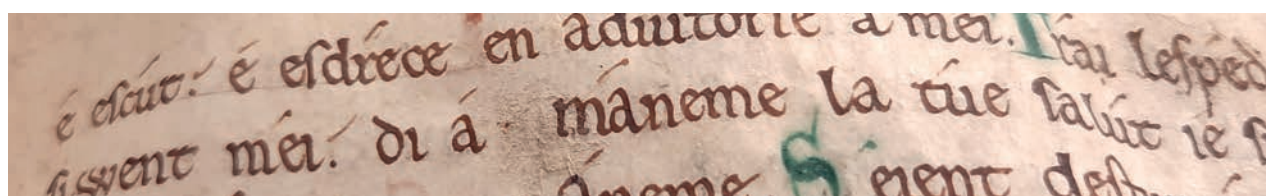 é eſcút: é eſdréce en adiutorie a mei. Trai leſpéd
ſiwent méi: di á máneme la túe ſalút ie ſ
áneme Seient